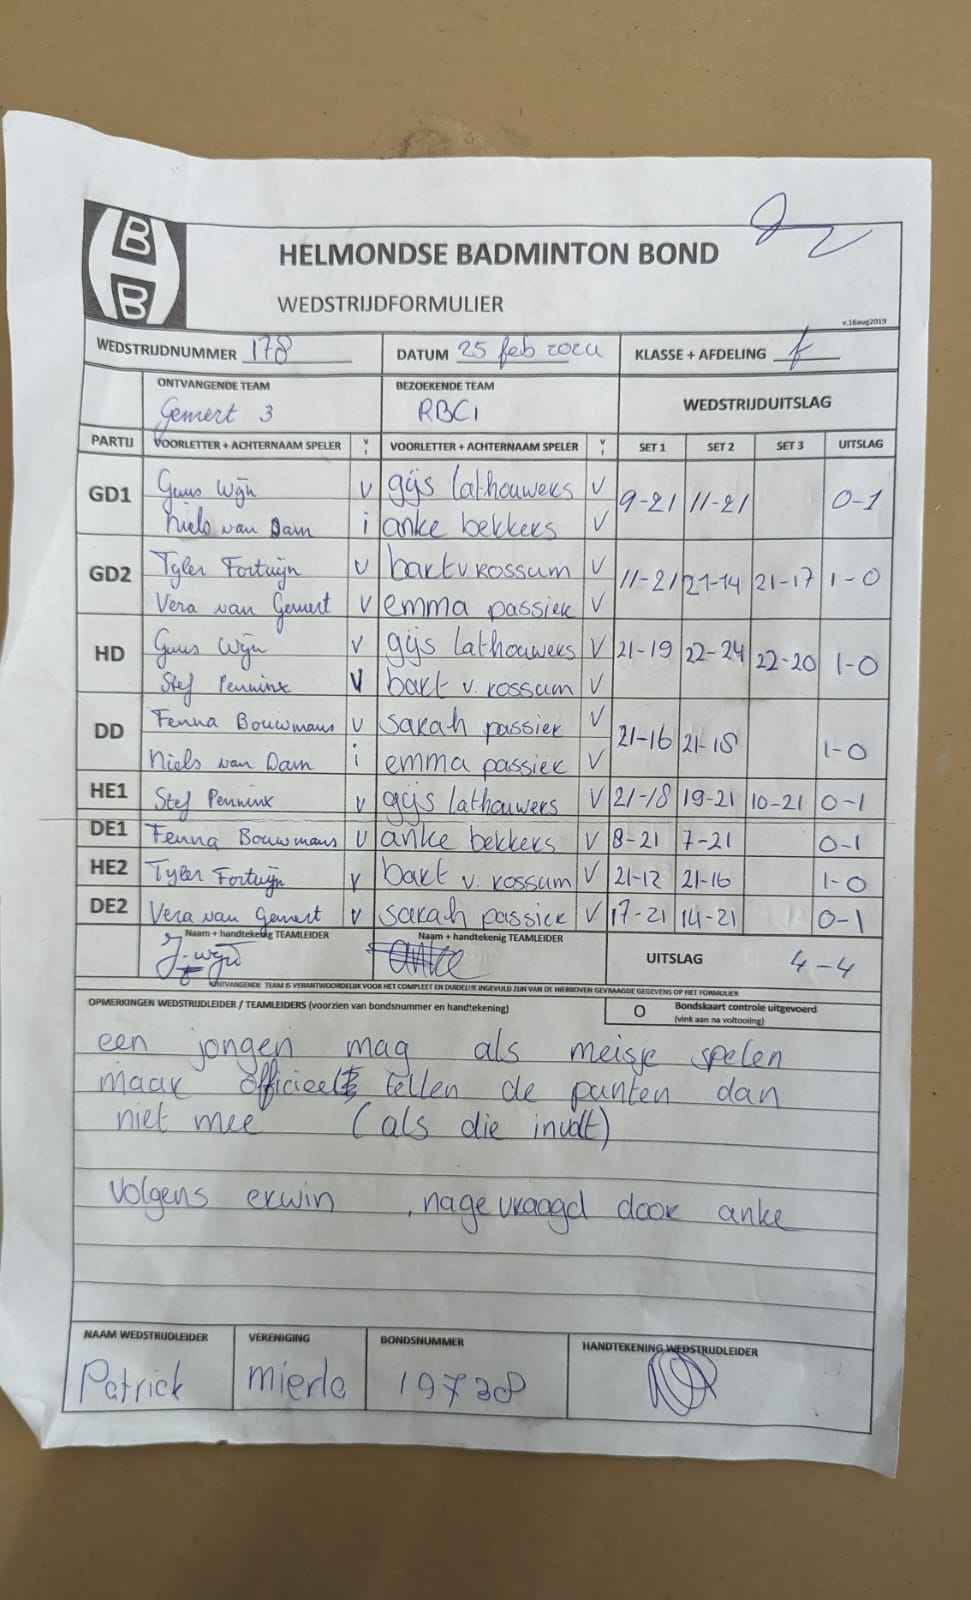 B
B
HELMONDSE BADMINTON BOND
WEDSTRIJDFORMULIER
v.16aug2019
WEDSTRIJDNUMMER 178 DATUM 25 feb 2024 KLASSE + AFDELING
ONTVANGENDE TEAM BEZOEKENDE TEAM WEDSTRIJDUITSLAG
Gemert 3 RBC1
PARTIJ VOORLETTER + ACHTERNAAM SPELER V I VOORLETTER + ACHTERNAAM SPELER V I SET 1 SET 2 SET 3 UITSLAG
GD1 Guus Wijn V gijs lathouwers V 9-21 11-21 0-1
Niels van Dam i anke bekkers V
GD2 Tyler Fortuijn V bart v rossum V 11-21 21-14 21-17 1-0
Vera van Gemert V emma passier V
HD Guus Wijn V gijs lathouwers V 21-19 22-24 22-20 1-0
Stef Penninx V bart v. rossum V
DD Fenna Bouwmans V sarah passier V 21-16 21-18 1-0
Niels van Dam i emma passier V
HE1 Stef Penninx V gijs lathouwers V 21-18 19-21 10-21 0-1
DE1 Fenna Bouwmans V anke bekkers V 8-21 7-21 0-1
HE2 Tyler Fortuijn V bart v. rossum V 21-12 21-16 1-0
DE2 Vera van Gemert V sarah passier V 17-21 14-21 0-1
Naam + handtekenig TEAMLEIDER Naam + handtekenig TEAMLEIDER UITSLAG 4-4
anke
ONTVANGENDE TEAM IS VERANTWOORDELIJK VOOR HET COMPLEET EN DUIDELIJK INGEVULD ZIJN VAN DE HIERBOVEN GEVRAAGDE GEGEVENS OP HET FORMULIER
OPMERKINGEN WEDSTRIJDLEIDER / TEAMLEIDERS (voorzien van bondsnummer en handtekening) O Bondskaart controle uitgevoerd
(vink aan na voltooiing)
een jongen mag als meisje spelen
maar officieel tellen de punten dan
niet mee (als die invalt)
volgens erwin , nagevraagd door anke
NAAM WEDSTRIJDLEIDER VERENIGING BONDSNUMMER HANDTEKENING WEDSTRIJDLEIDER
Patrick Mierlo 19738